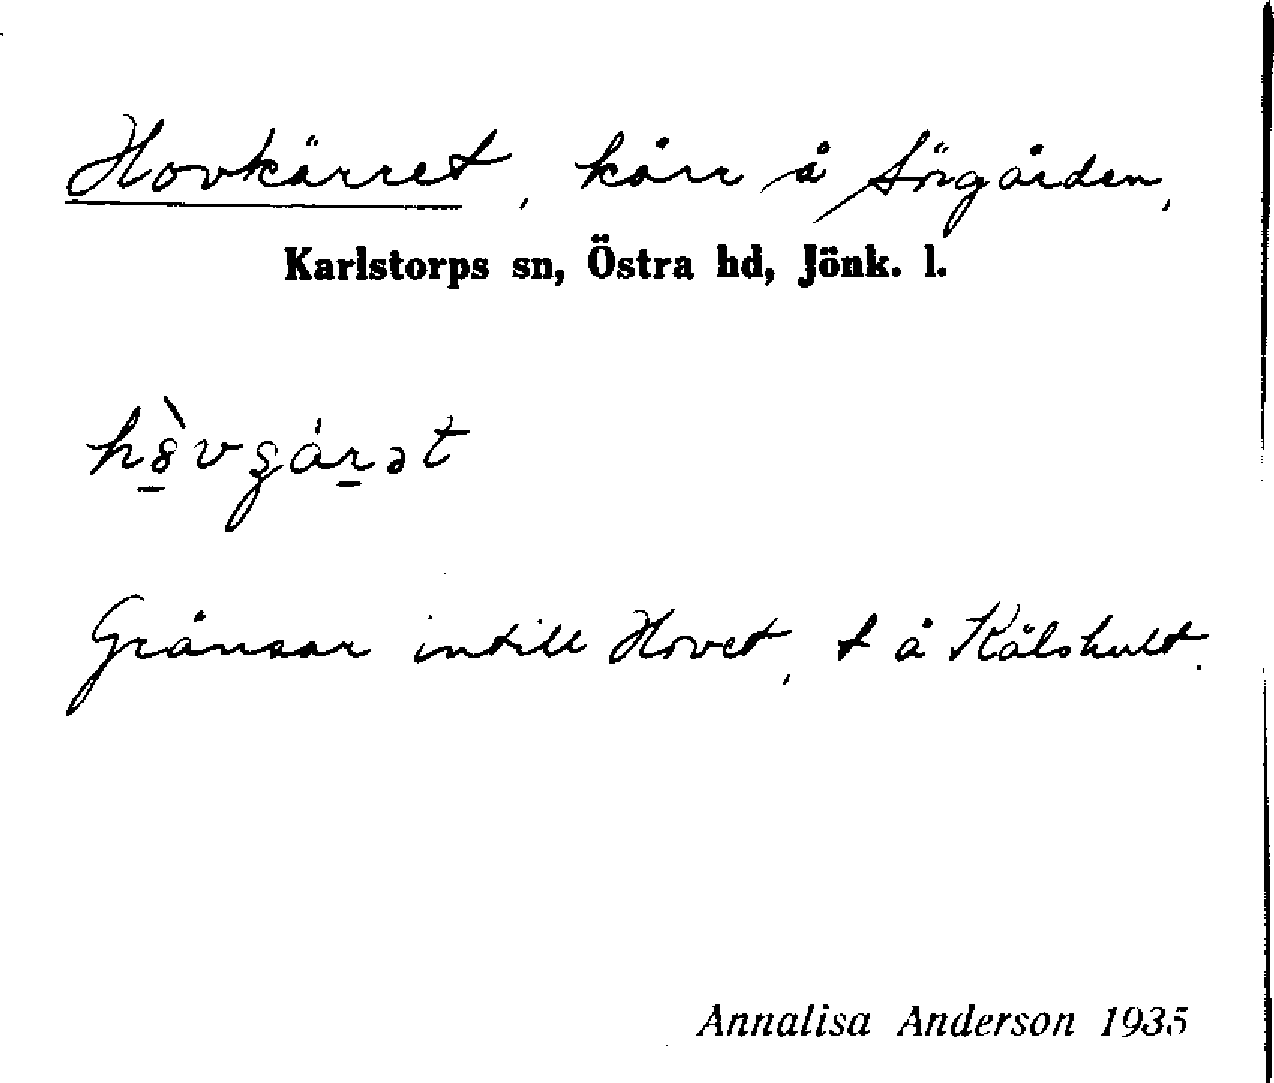 Hovkärret, kärr å Sörgården,
Karlstorps sn, Östra hd, Jönk. l.
Gränsar intill Hovet, t å Kälshult.
Annalisa Anderson 1935